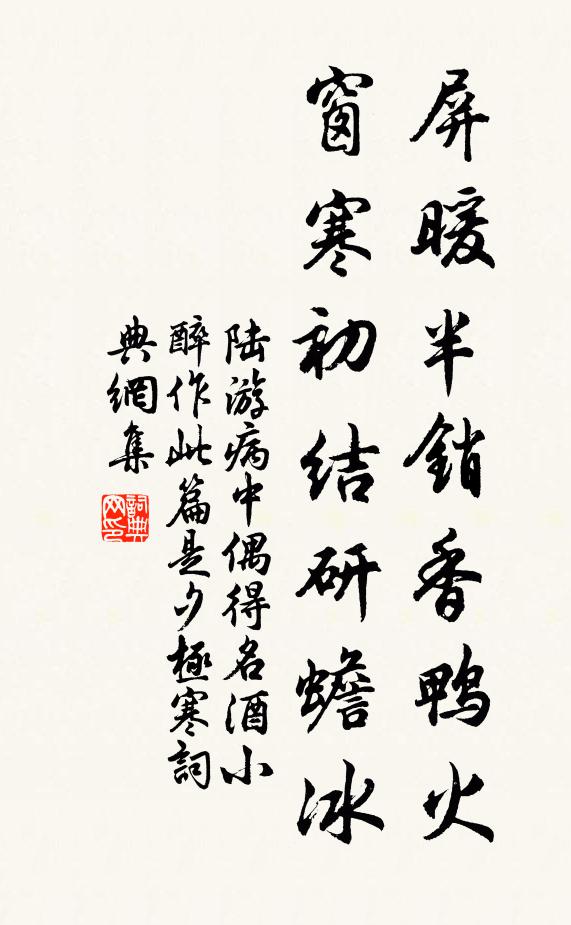 屏暖半銷香鴨火
窗寒初結研蟾冰
陆游病中偶得名酒小
醉作此篇是夕極寒詞
典網集
詞典
网印